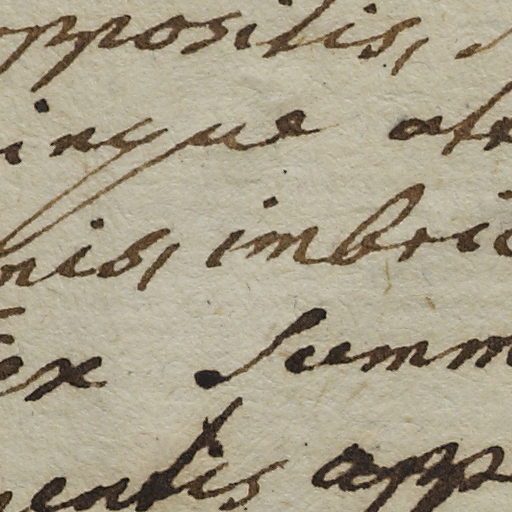 oppositis,
inque atr
nis, imbric
ex Summ
entis app